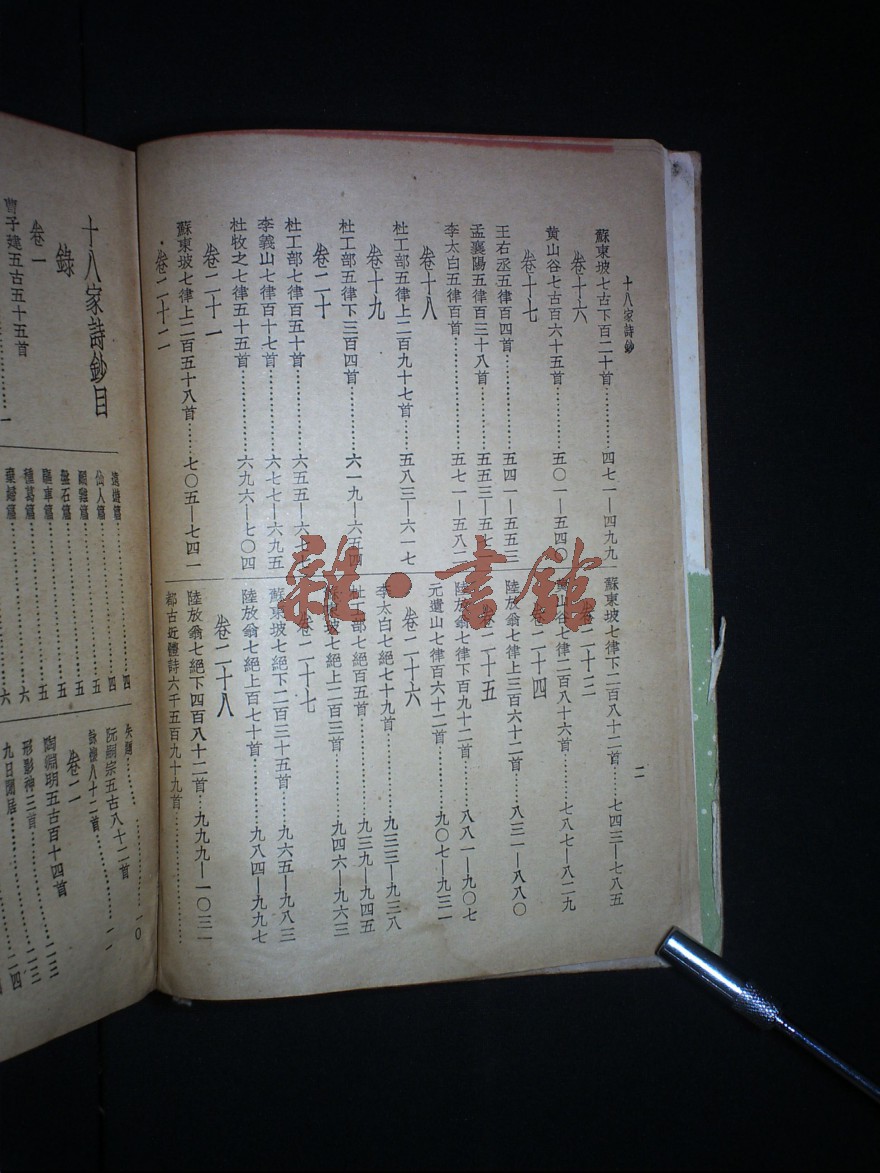 十八家詩鈔
二
蘇東坡七古下百二十首………四七一—四九九
卷十六
黄山谷七古百六十五首………五〇一—五四〇
卷十七
王右丞五律百四首………五四一—五五三
孟襄陽五律百三十八首……五五三—五七一
李太白五律百首………五七一—五八二
卷十八
杜工部五律上二百九十七首……五八三—六一七
卷十九
杜工部五律下三百四首………六一九—六五四
卷二十
杜工部七律百五十首………六五五—六七七
李義山七律百十七首………六七七—六九五
杜牧之七律五十五首………六九六—七〇四
卷二十一
蘇東坡七律上二百五十八首……七〇五—七四一
卷二十二
蘇東坡七律下二百八十二首……七四三—七八五
卷二十三
黄山谷七律二百八十六首……七八七—八二九
卷二十四
陸放翁七律上三百六十二首……八三一—八八〇
卷二十五
陸放翁七律下百九十二首……八八一—九〇七
元遺山七律百六十二首……九〇七—九三一
卷二十六
李太白七絕七十九首………九三三—九三八
杜工部七絕百五首………九三九—九四五
蘇東坡七絕上二百三首………九四六—九六三
卷二十七
蘇東坡七絕下二百三十五首……九六五—九八三
陸放翁七絕上百七十首………九八四—九九七
卷二十八
陸放翁七絕下四百八十二首…九九九—一〇三一
都古近體詩六千五百九十九首………
十八家詩鈔目
錄
卷一
曹子建五古五十五首………一
遠遊篇………四
仙人篇………五
鬭雞篇………五
盤石篇………五
驅車篇………五
種葛篇………六
棄婦篇………六
失題………一〇
阮嗣宗五古八十二首
詠懷八十二首………一一
卷二
陶淵明五古百十四首
形影神三首………二三
九日閒居………二四
雜·書館